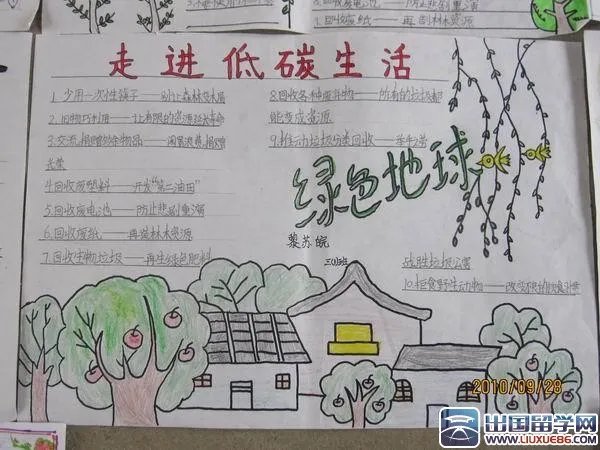 走进低碳生活
1.少用一次性筷子——别让森林变木屑
2.旧物巧利用——让有限的资源延长寿命
3.交流、捐赠多余物品——闲置浪费,捐赠
光荣
4.回收废塑料——开发"第二油田"
5.回收废电池——防止悲剧重演
6.回收废纸——再造林木资源
7.回收生物垃圾——再生绿色肥料
8.回收各种废弃物——所有的垃圾都
能变成资源
9.推动垃圾分类回收——举手之劳
绿色地球
黎苏皖
三(1)班
战胜垃圾公害
10.拒食野生动物——改变不良的饮食习惯
2010/09/28
出国留学网
www.LIUXUE86.COM